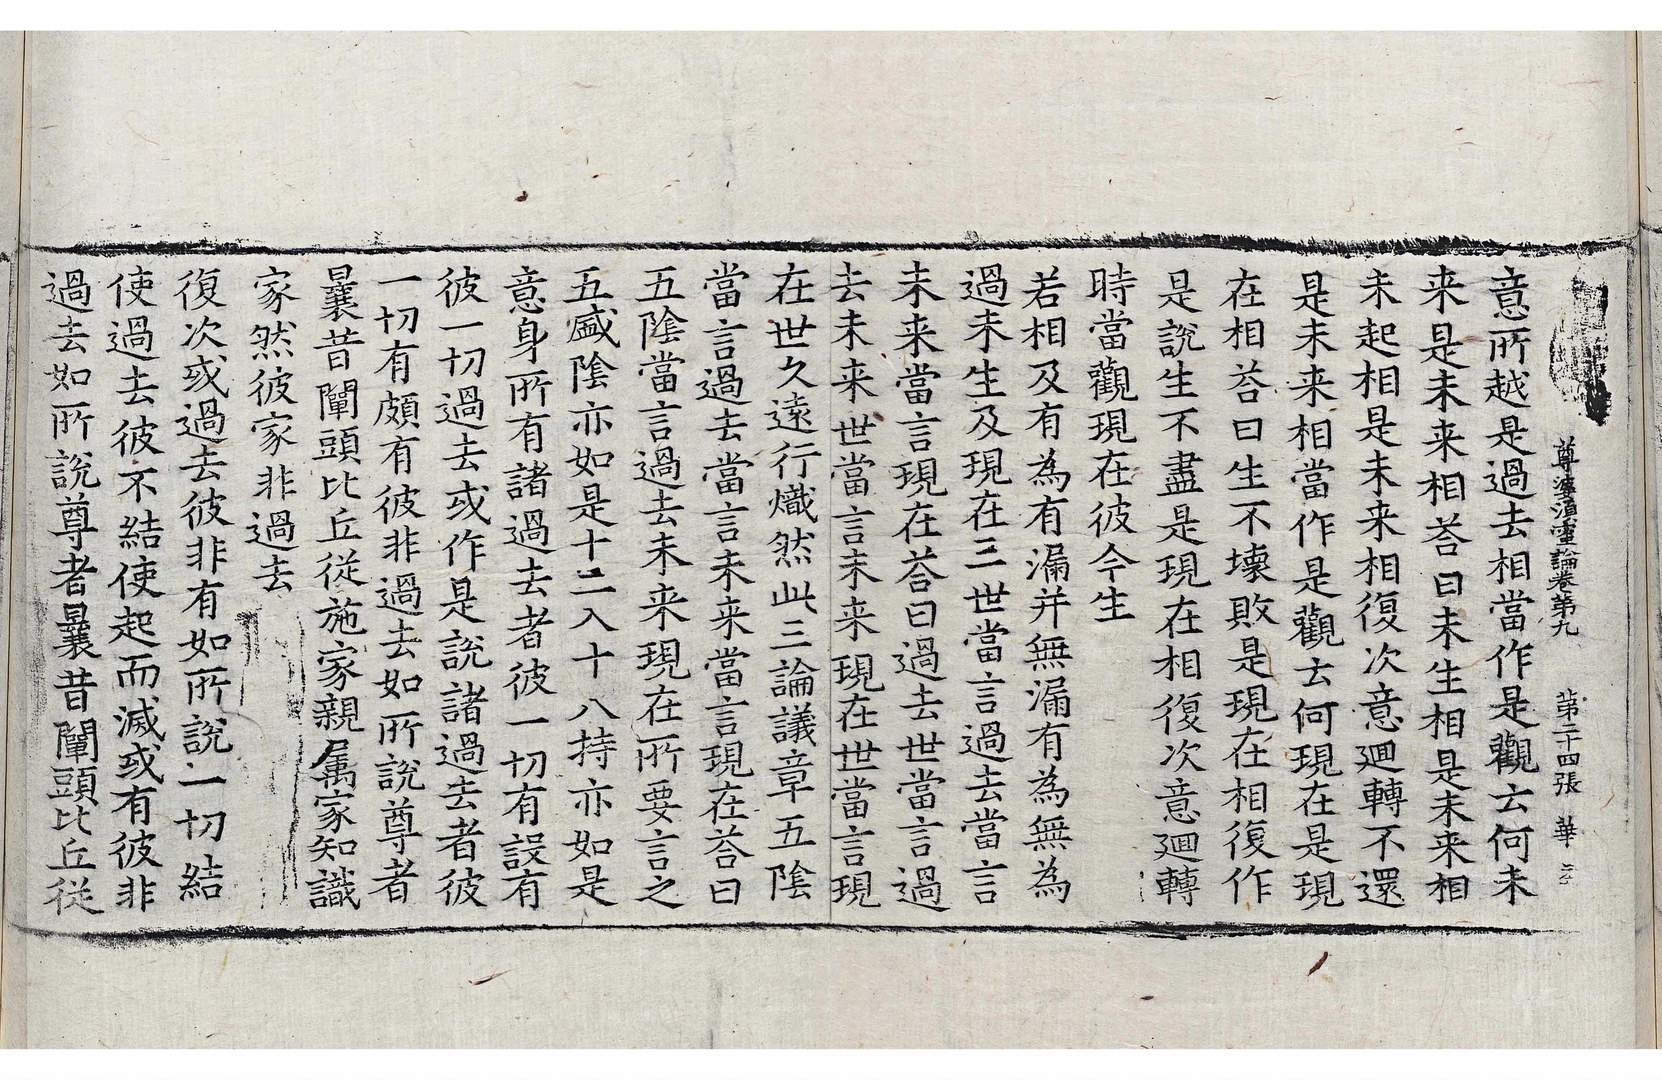 尊婆湏蜜論卷第九 第二十四張 華
意所越是過去相當作是觀云何未
来是未来相荅曰未生相是未来相
未起相是未来相復次意迴轉不還
是未来相當作是觀云何現在是現
在相荅曰生不壞敗是現在相復作
是說生不盡是現在相復次意迴轉
時當觀現在彼今生
若相及有為有漏并無漏有為無為
過未生及現在三世當言過去當言
未来當言現在荅曰過去世當言過
去未来世當言未来現在世當言現
在世久遠行熾然此三論議章五陰
當言過去當言未来當言現在荅曰
五陰當言過去未来現在所要言之
五盛陰亦如是十二入十八持亦如是
意身所有諸過去者彼一切有設有
彼一切過去或作是說諸過去者彼
一切有頗有彼非過去如所說尊者
曩昔闡頭比丘從施家親屬家知識
家然彼家非過去
復次或過去彼非有如所說一切結
使過去彼不結使起而滅或有彼非
過去如所說尊者曩昔闡頭比丘從